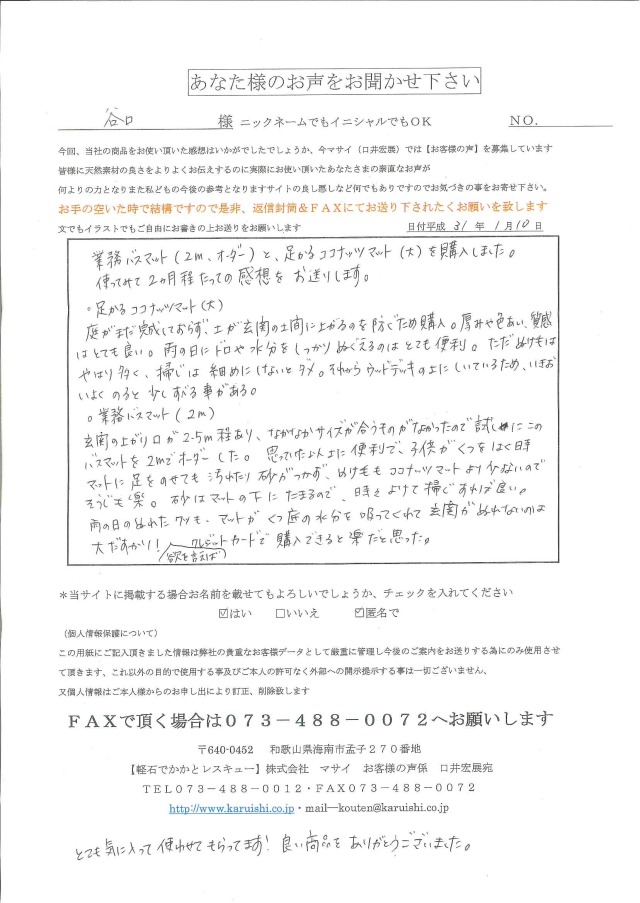 あなた様のお声をお聞かせ下さい
谷口 様 ニックネームでもイニシャルでもOK NO.
今回、当社の商品をお使い頂いた感想はいかがでしたでしょうか、今マサイ（口井宏展）では【お客様の声】を募集しています
皆様に天然素材の良さをよりよくお伝えするのに実際にお使い頂いたあなたさまの素直なお声が
何よりの力となりまた私どもの今後の参考となりますサイトの良し悪しなど何でもありですのでお気づきの事をお寄せ下さい。
お手の空いた時で結構ですので是非、返信封筒＆FAXにてお送り下されたくお願いを致します
文でもイラストでもご自由にお書きの上お送りをお願いします 日付平成 31 年 1月10日
業務バスマット（2m、オーダー）と、足かるココナッツマット（大）を購入しました。
使ってみて2ヵ月程たっての感想をお送りします。
○足かるココナッツマット（大）
庭がまだ完成しておらず、土が玄関の土間に上がるのを防ぐため購入。厚みや色あい、質感
はとても良い。雨の日にドロや水分をしっかりぬぐえるのはとても便利。ただぬけもは
やはり多く、掃じは細めにしないとダメ。それからウッドデッキの上にしいているため、いきお
いよくのると少しすべる事がある。
○業務バスマット（2m）
玄関の上がり口が2.5m程あり、なかなかサイズが合うものがなかったので試しにこの
バスマットを2mでオーダーした。思っていたより便利で、子供がくつをはく時
マットに足をのせても汚れたり砂がつかず、ぬけ毛もココナッツマットより少ないので
そうじも楽。砂はマットの下にたまるので、時々よけて掃じすれば良い。
雨の日のぬれたクツも、マットがくつ底の水分を吸ってくれて玄関がぬれないのは
大だすかり！ 欲を言えば クレジットカードで購入できると楽だと思った。
＊当サイトに掲載する場合お名前を載せてもよろしいでしょうか、チェックを入れてください
☑はい □いいえ ☑匿名で
（個人情報保護について）
この用紙にご記入頂きました情報は弊社の貴重なお客様データとして厳重に管理し今後のご案内をお送りする為にのみ使用させ
て頂きます、これ以外の目的で使用する事及びご本人の許可なく外部への開示提示する事は一切ございません、
又個人情報はご本人様からのお申し出により訂正、削除致します
FAXで頂く場合は073－488－0072へお願いします
〒640-0452 和歌山県海南市孟子270番地
【軽石でかかとレスキュー】株式会社 マサイ お客様の声係 口井宏展宛
TEL073－488－0012・FAX073－488－0072
http://www.karuishi.co.jp・mail―kouten@karuishi.co.jp
とても気に入って使わせてもらってます！良い商品をありがとうございました。